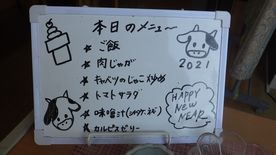 本日のメニュー
★ ご飯
★ 肉じゃが
2021
★ キャベツのじゃこ炒め
★ トマトサラダ
★ 味噌汁
★ カルピスゼリー
HAPPY
NEW
YEAR